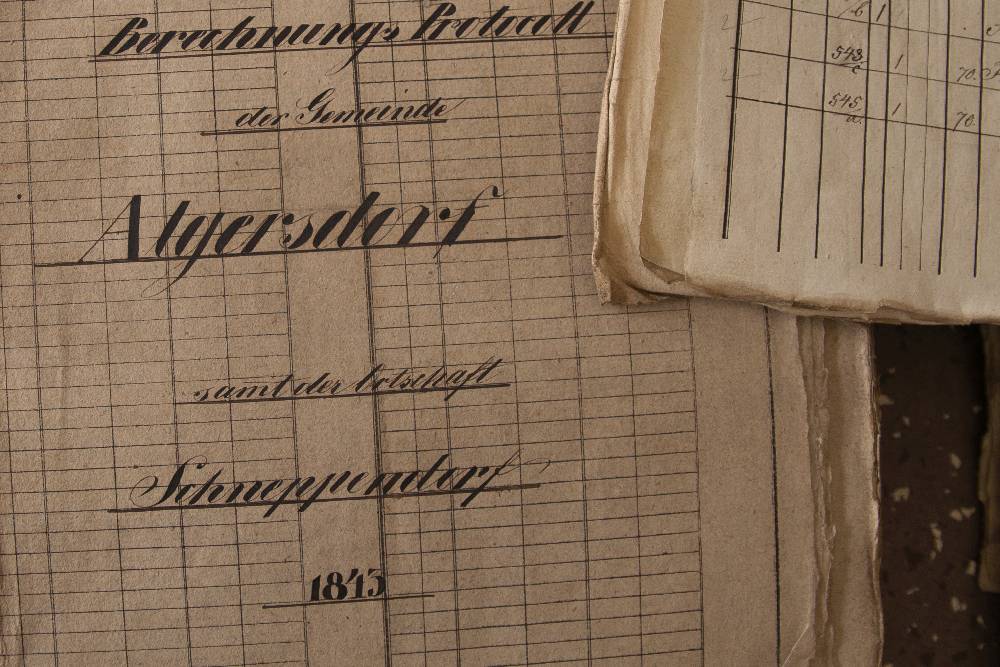 Berechnungs Protocoll
der Gemeinde
Algersdorf
samt der Ortschaft
Schneppendorf
1843
6 1
543 c 1 70
545 a. 1 70